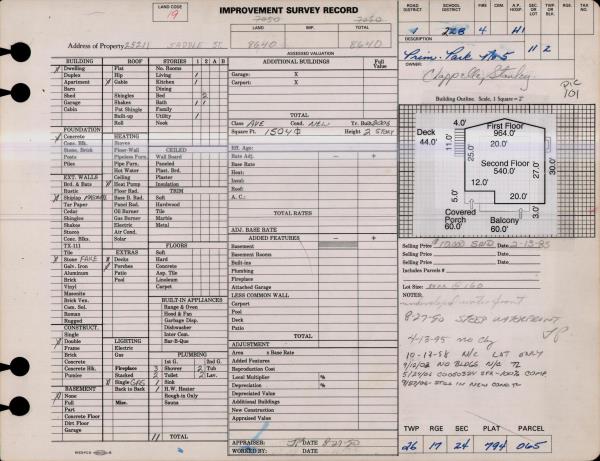 LAND CODE
19
IMPROVEMENT SURVEY RECORD
ROAD DISTRICT
SCHOOL DISTRICT
FIRE
A.P. HOSP.
SEC OR LOT
TWP. OR BLK.
RGE.
TAX NO.
9 22B 4 H1
7050 7050
LAND IMP. TOTAL
Address of Property 25211 SADDLE ST. 8640 8640
ASSESSED VALUATION
DESCRIPTION
Prim. Park No 5 11 2
OWNER
Chappelle, Stanley
PIC 101
BUILDING ROOF STORIES 1 2 A B
Dwelling Flat No. Rooms
Duplex Hip Living
Apartment Gable Kitchen
Barn Dining
Shed Shingles Bed 2
Garage Shakes Bath
Cabin Pat. Shingle Family
Built-up Utility
Roll Nook
ADDITIONAL BUILDINGS Full Value
Garage: X
Carport: X
TOTAL
Class AVE Cond. NEW Yr. Built 2006
Square Ft. 1504 Height 2 STORY
Building Outline. Scale, 1 Square = 2'
First Floor
964.0
Deck
44.0
4.0'
11.0'
25.0'
20.0'
30.0'
Second Floor
540.0
27.0'
12.0'
20.0'
5.0'
3.0'
Covered Porch
60.0
Balcony
60.0
FOUNDATION
Concrete HEATING
Conc. Blk. Stove
Stone, Brick Floor-Wall CEILED
Posts Pipeless Furn. Wall Board
Piers Pipe Furn. Paneled
Hot Water Plast. Brd.
EXT. WALLS Ceiling Plaster
Brd. & Bats Heat Pump Insulation
Rustic Floor Rad. TRIM
Shiplap Base B. Rad. Soft
Tar Paper Panel Rad. Hardwood
Cedar Oil Burner Tile
Shingles Gas Burner Marble
Stucco Air Cond. Metal
Conc. Blks. Solar
TX-111 FLOORS
Tile EXTRAS Soft
Stone FAKE Decks Hard
Galv. Iron Porches Concrete
Aluminum Patio Asp. Tile
Brick Pool Linoleum
Vinyl Carpet
Masonite
Brick Ven. BUILT-IN APPLIANCES
Com. Sol. Range & Oven
Roman Hood & Fan
Rugged Garbage Disp.
CONSTRUCT. Dishwasher
Single LIGHTING Inter Com.
Double Electric Bar-B-Que
Frame Gas
Brick PLUMBING
Concrete 1st G. 2nd G.
Concrete Blk. Fireplace 3 Shower 2 Tub
Pumice Stacked 2 Toilet 2 Lav.
BASEMENT Single GAS 1 Sink
None Back to Back H.W. Heater
Full Misc. Rough-in Only
Part Sauna
Concrete Floor
Dirt Floor
Garage 11 TOTAL
Eff. Age:
Rate Adj. — +
Base Rate
Heat:
Insul:
Roof:
A. C.:
TOTAL RATES
ADJ. BASE RATE
ADDED FEATURES — +
Basement
Basement Rooms
Built-ins
Plumbing
Fireplace
Attached Garage
LESS COMMON WALL
Carport
Pool
Deck
Patio
TOTAL
ADJUSTMENT
Area x Base Rate
Added Features
Reproduction Cost
Local Multiplier %
Depreciation %
Depreciated Value
Additional Buildings
New Construction
Appraised Value
APPRAISER: JP DATE 8-27-50
WORKED BY: DATE
Selling Price Date 2-13-85
Selling Price Date
Includes Parcels #
Lot Size:
NOTES:
undeveloped waterfront
8-27-50 STEEP WATERFRONT JP
4-13-95 no chg
10-17-98 N/C LOT ONLY
9/12/02 NO BLDGS N/C TL
TWP RGE SEC PLAT PARCEL
26 17 24 794 065